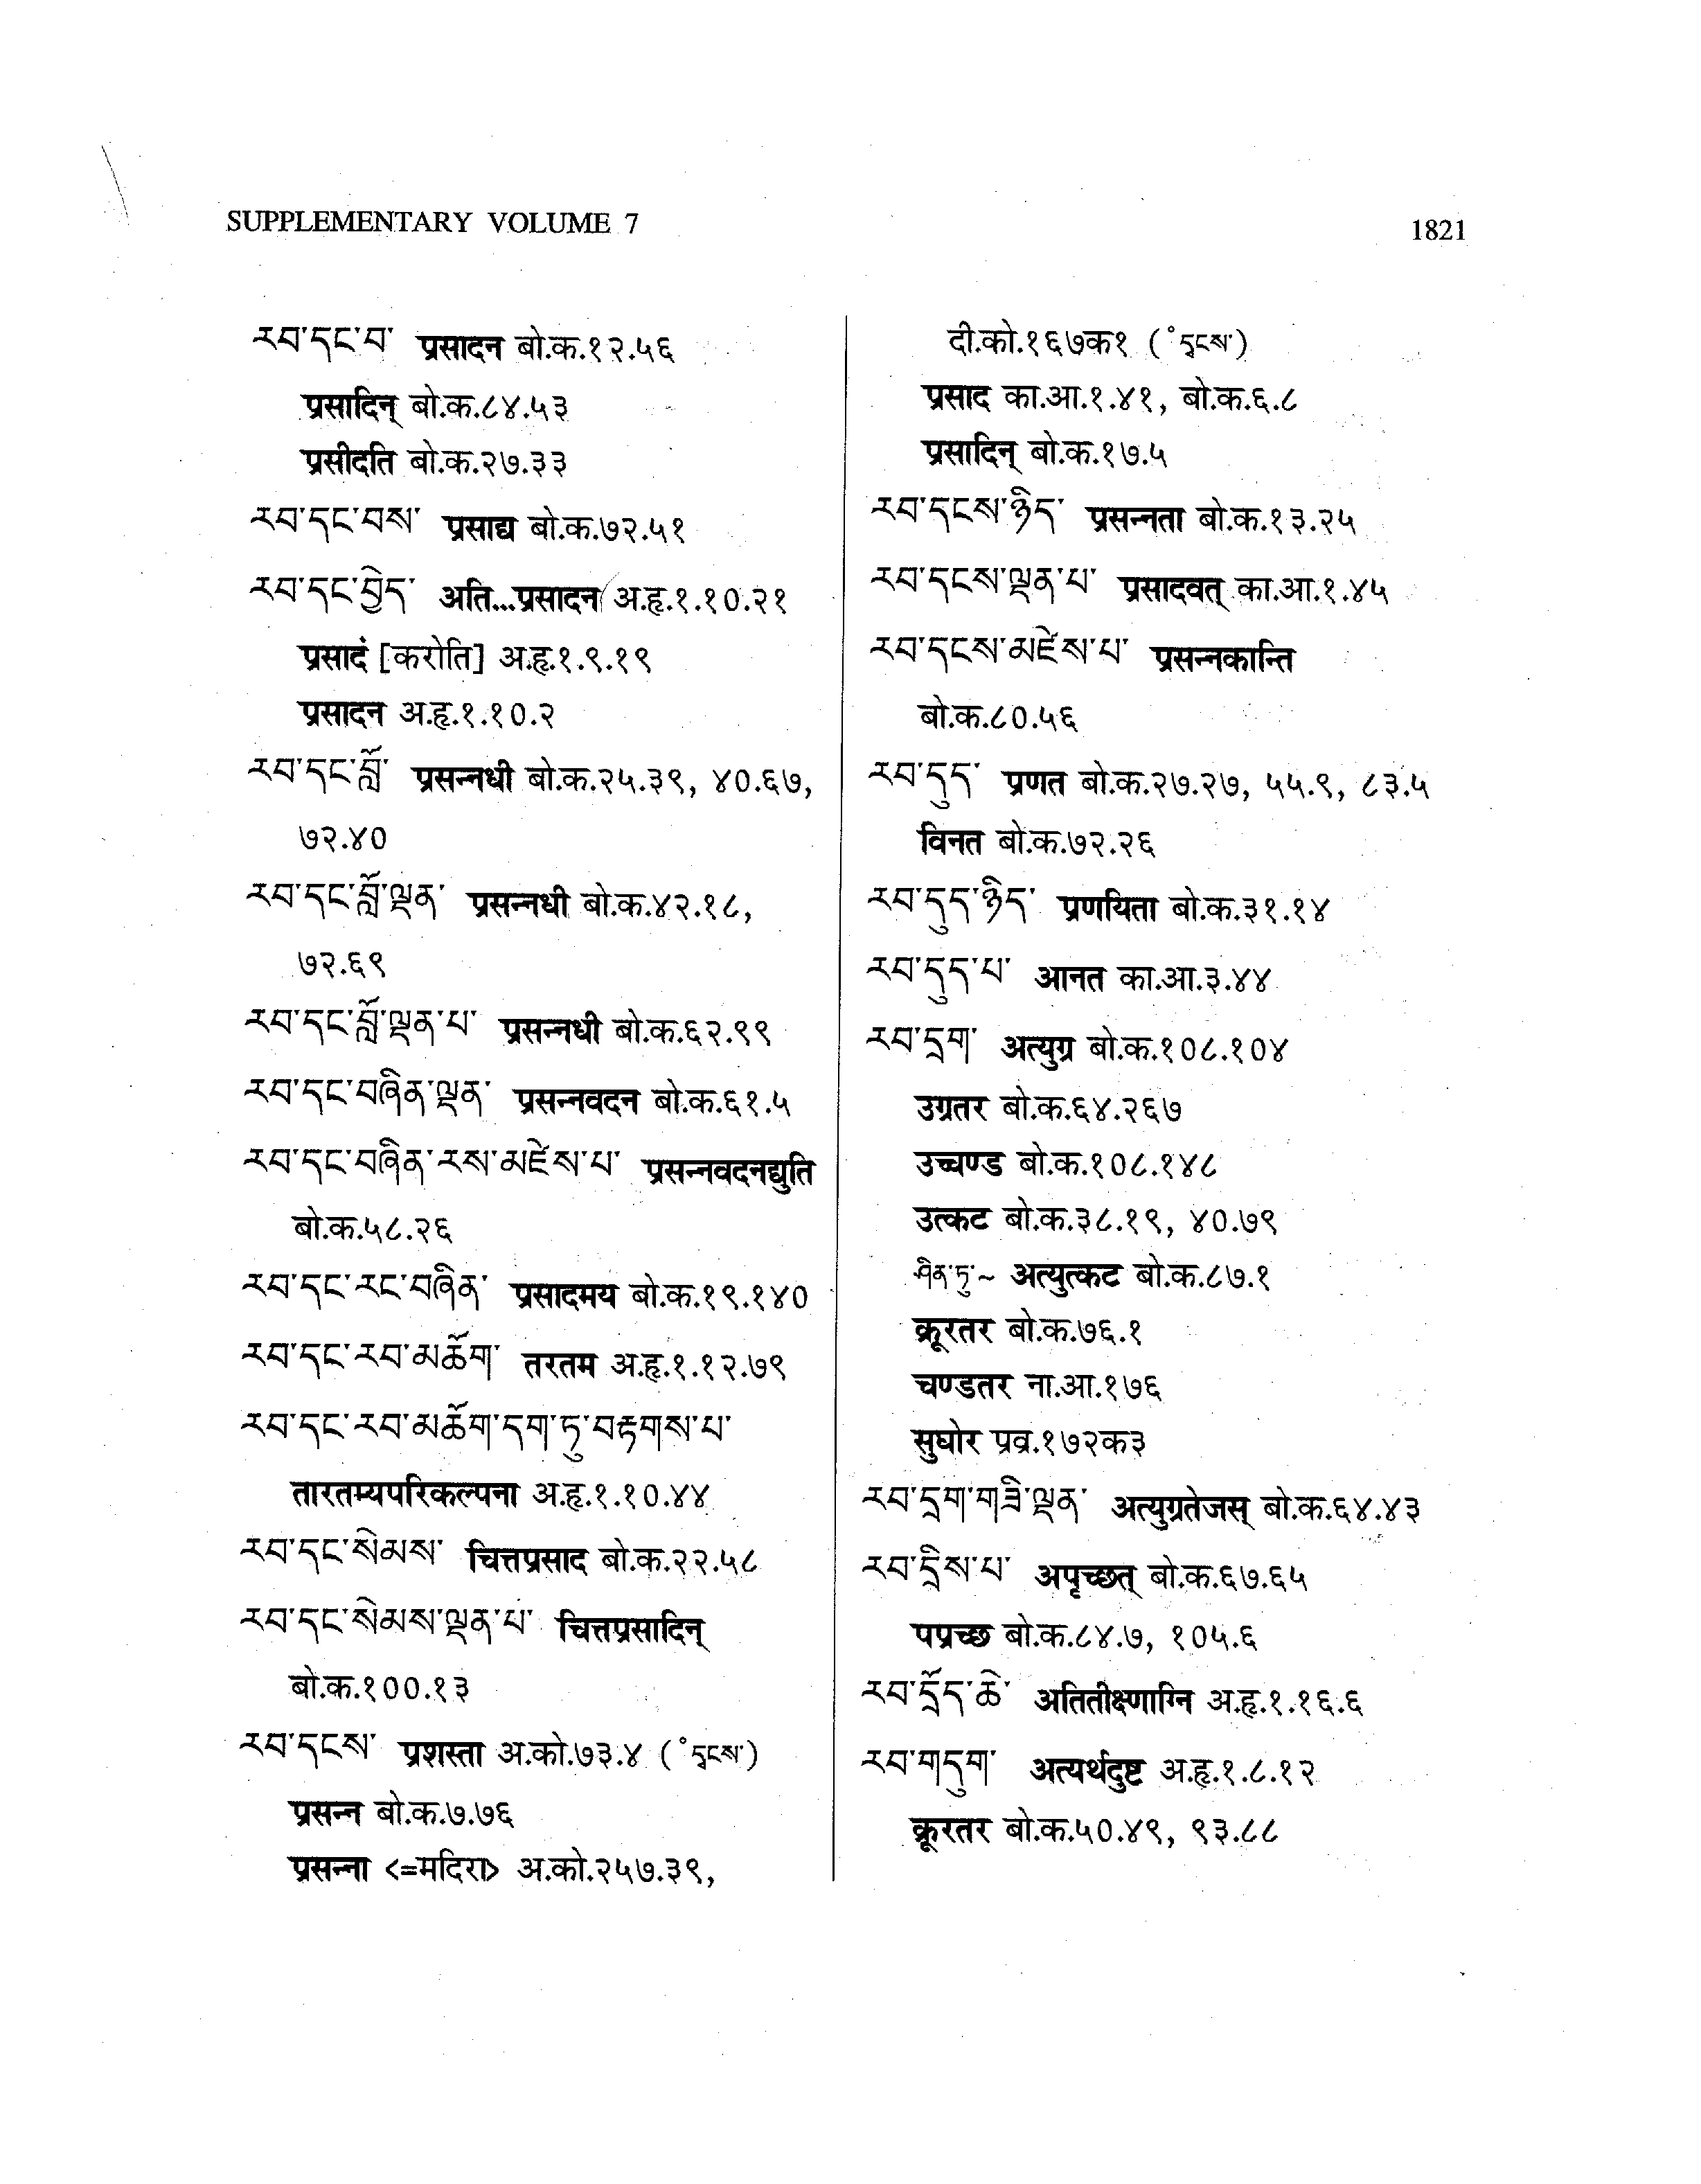 SUPPLEMENTARY VOLUME 7
1821
རབ་དང་བ་ प्रसादन बो.क.१२.५६
प्रसादिन् बो.क.८४.५३
प्रसीदति बो.क.२७.३३
རབ་དང་བས་ प्रसाद्य बो.क.७२.५१
རབ་དང་བྱེད་ अति...प्रसादन अ.हृ.१.१०.२१
प्रसादं [करोति] अ.हृ.१.९.१९
प्रसादन अ.हृ.१.१०.२
རབ་དང་བློ་ प्रसन्नधी बो.क.२५.३९, ४०.६७,
७२.४०
རབ་དང་བློ་ལྡན་ प्रसन्नधी बो.क.४२.१८,
७२.६९
རབ་དང་བློ་ལྡན་པ་ प्रसन्नधी बो.क.६२.९९
རབ་དང་བཞིན་ལྡན་ प्रसन्नवदन बो.क.६१.५
རབ་དང་བཞིན་རས་མཛེས་པ་ प्रसन्नवदनद्युति
बो.क.५८.२६
རབ་དང་རང་བཞིན་ प्रसादमय बो.क.१९.१४०
རབ་དང་རབ་མཆོག་ तरतम अ.हृ.१.१२.७९
རབ་དང་རབ་མཆོག་དག་ཏུ་བརྟགས་པ་
तारतम्यपरिकल्पना अ.हृ.१.१०.४४
རབ་དང་སེམས་ चित्तप्रसाद बो.क.२२.५८
རབ་དང་སེམས་ལྡན་པ་ चित्तप्रसादिन्
बो.क.१००.१३
རབ་དངས་ प्रशस्ता अ.को.७३.४ (॰དྭངས་)
प्रसन्न बो.क.७.७६
प्रसन्ना <=मदिरा> अ.को.२५७.३९,
दी.को.१६७क१ (॰དྭངས་)
प्रसाद का.आ.१.४१, बो.क.६.८
प्रसादिन् बो.क.१७.५
རབ་དངས་ཉིད་ प्रसन्नता बो.क.१३.२५
རབ་དངས་ལྡན་པ་ प्रसादवत् का.आ.१.४५
རབ་དངས་མཛེས་པ་ प्रसन्नकान्ति
बो.क.८०.५६
རབ་དུད་ प्रणत बो.क.२७.२७, ५५.९, ८३.५
विनत बो.क.७२.२६
རབ་དུད་ཉིད་ प्रणयिता बो.क.३१.१४
རབ་དུད་པ་ आनत का.आ.३.४४
རབ་དྲག་ अत्युग्र बो.क.१०८.१०४
उग्रतर बो.क.६४.२६७
उच्चण्ड बो.क.१०८.१४८
उत्कट बो.क.३८.१९, ४०.७९
ཤིན་ཏུ་~ अत्युत्कट बो.क.८७.१
क्रूरतर बो.क.७६.१
चण्डतर ना.आ.१७६
सुघोर प्रव्र.१७२क३
རབ་དྲག་གཟི་ལྡན་ अत्युग्रतेजस् बो.क.६४.४३
རབ་དྲིས་པ་ अपृच्छत् बो.क.६७.६५
पप्रच्छ बो.क.८४.७, १०५.६
རབ་དྲོད་ཆེ་ अतितीक्ष्णाग्नि अ.हृ.१.१६.६
རབ་གདུག་ अत्यर्थदुष्ट अ.हृ.१.८.१२
क्रूरतर बो.क.५०.४९, ९३.८८